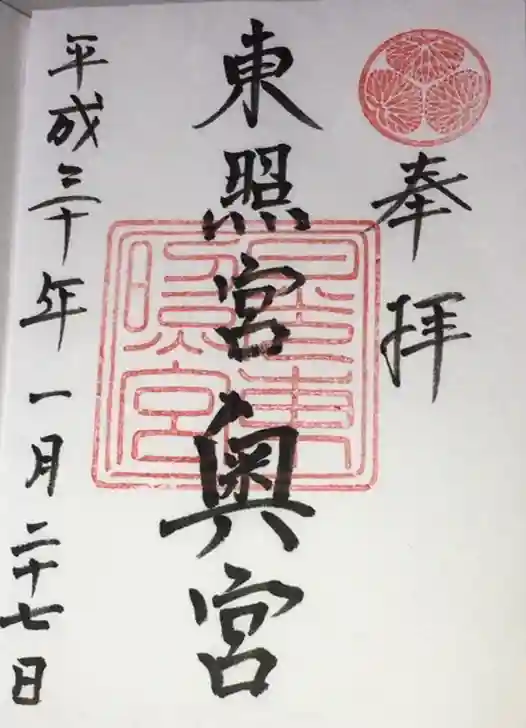 奉拝
東照宮奥宮
平成三十年一月二十七日